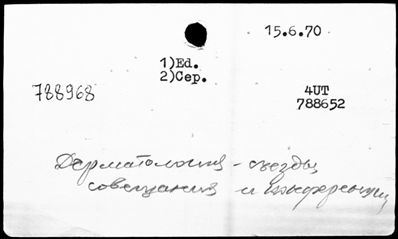 15.6.70
1)Ed.
2)Сер.
788968
4UT
788652
Дерматология - съезды,
совещания и конференции